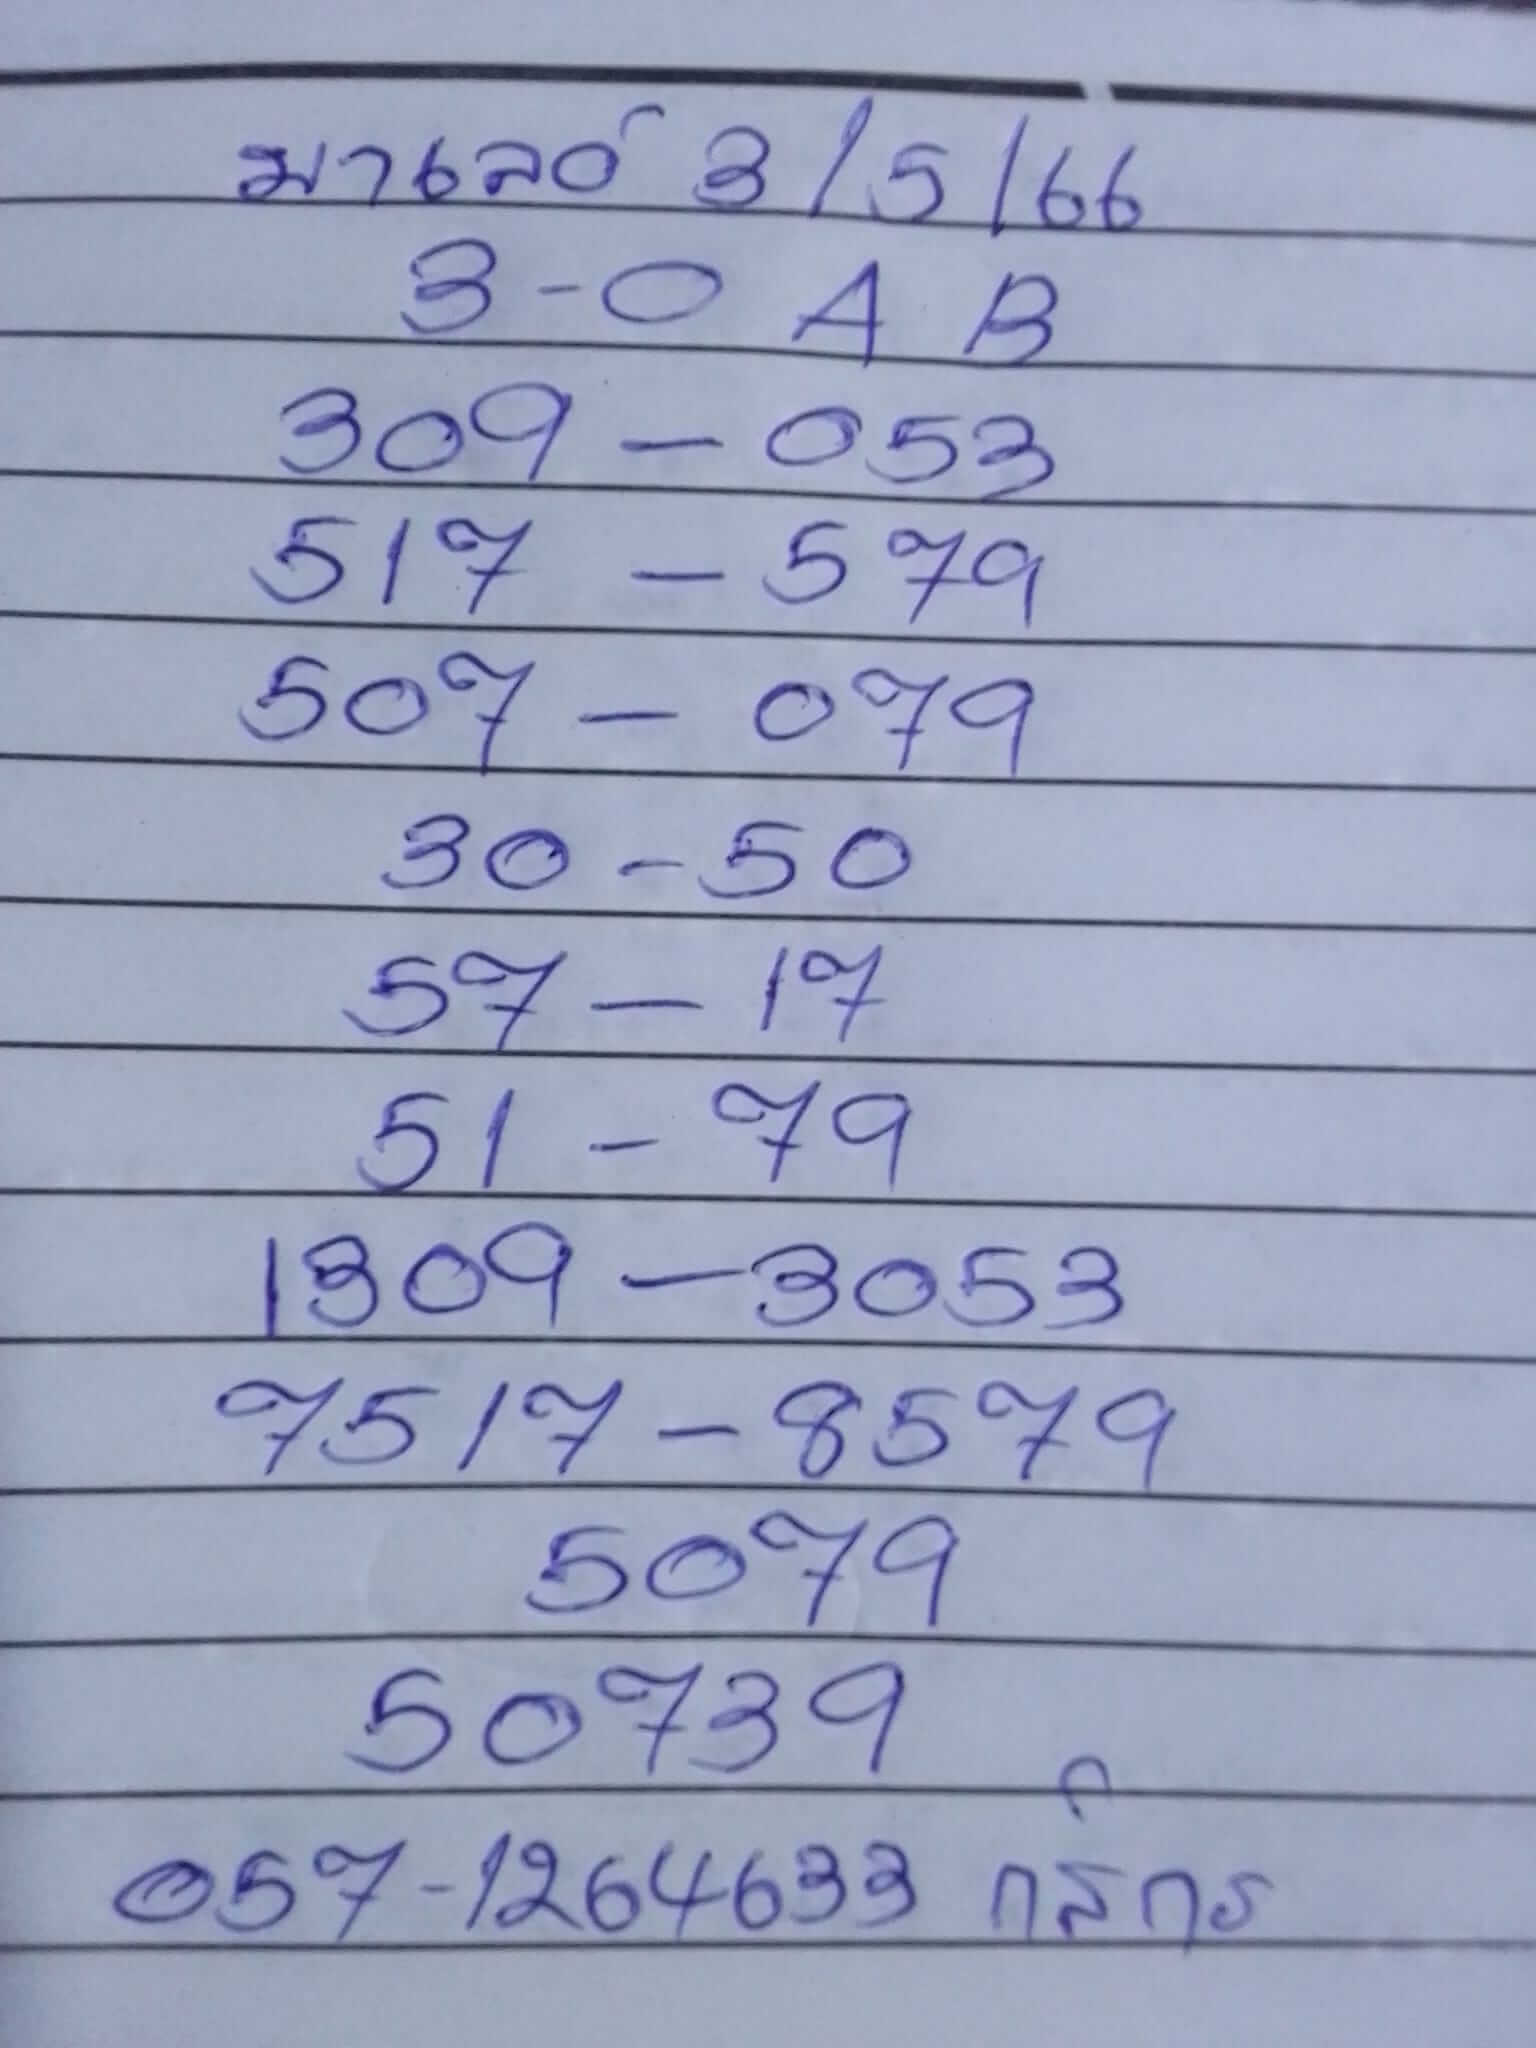 มาเลย์ 3/5/66
3-0 A B
309 - 053
517 - 579
507 - 079
30 - 50
57 - 17
51 - 79
1309 - 3053
7517 - 8579
5079
50739
057-1264633 กสิกร